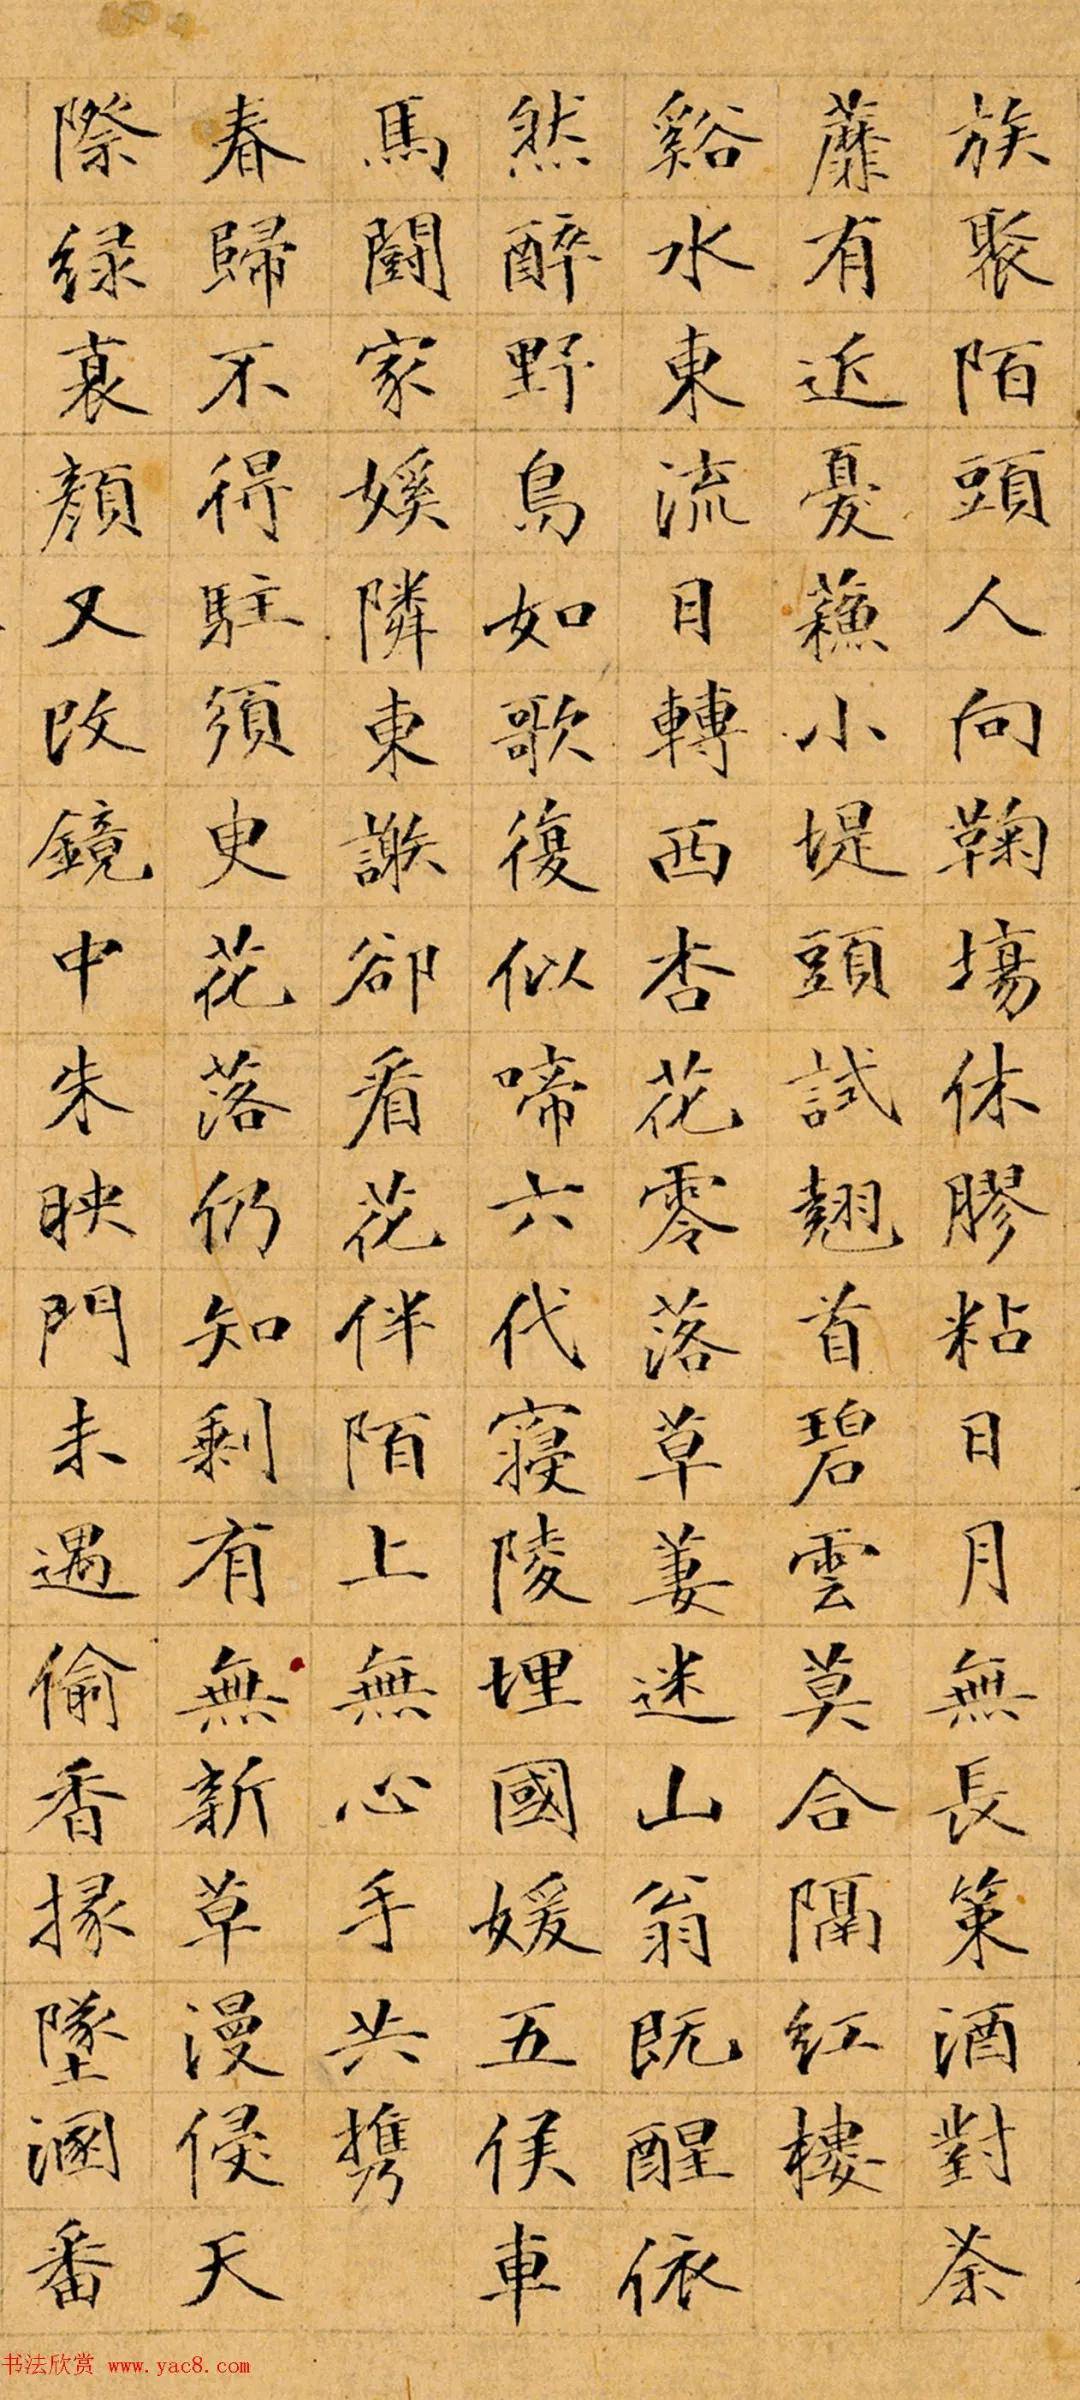 族聚陌頭人向鞠場休膠粘日月無長策酒對荼
蘼有近憂蘓小堤頭試翹首碧雲莫合隔紅樓
谿水東流日轉西杏花零落草萋迷山翁既醒依
然醉野鳥如歌復似啼六代寢陵埋國媛五侯車
馬鬪家媛隣東謝卻看花伴陌上無心手共攜
春歸不得駐須臾花落仍知剩有無新草漫侵天
際綠衰顏又改鏡中朱映門未遇偷香掾墜溷番
书法欣赏 www.yac8.com